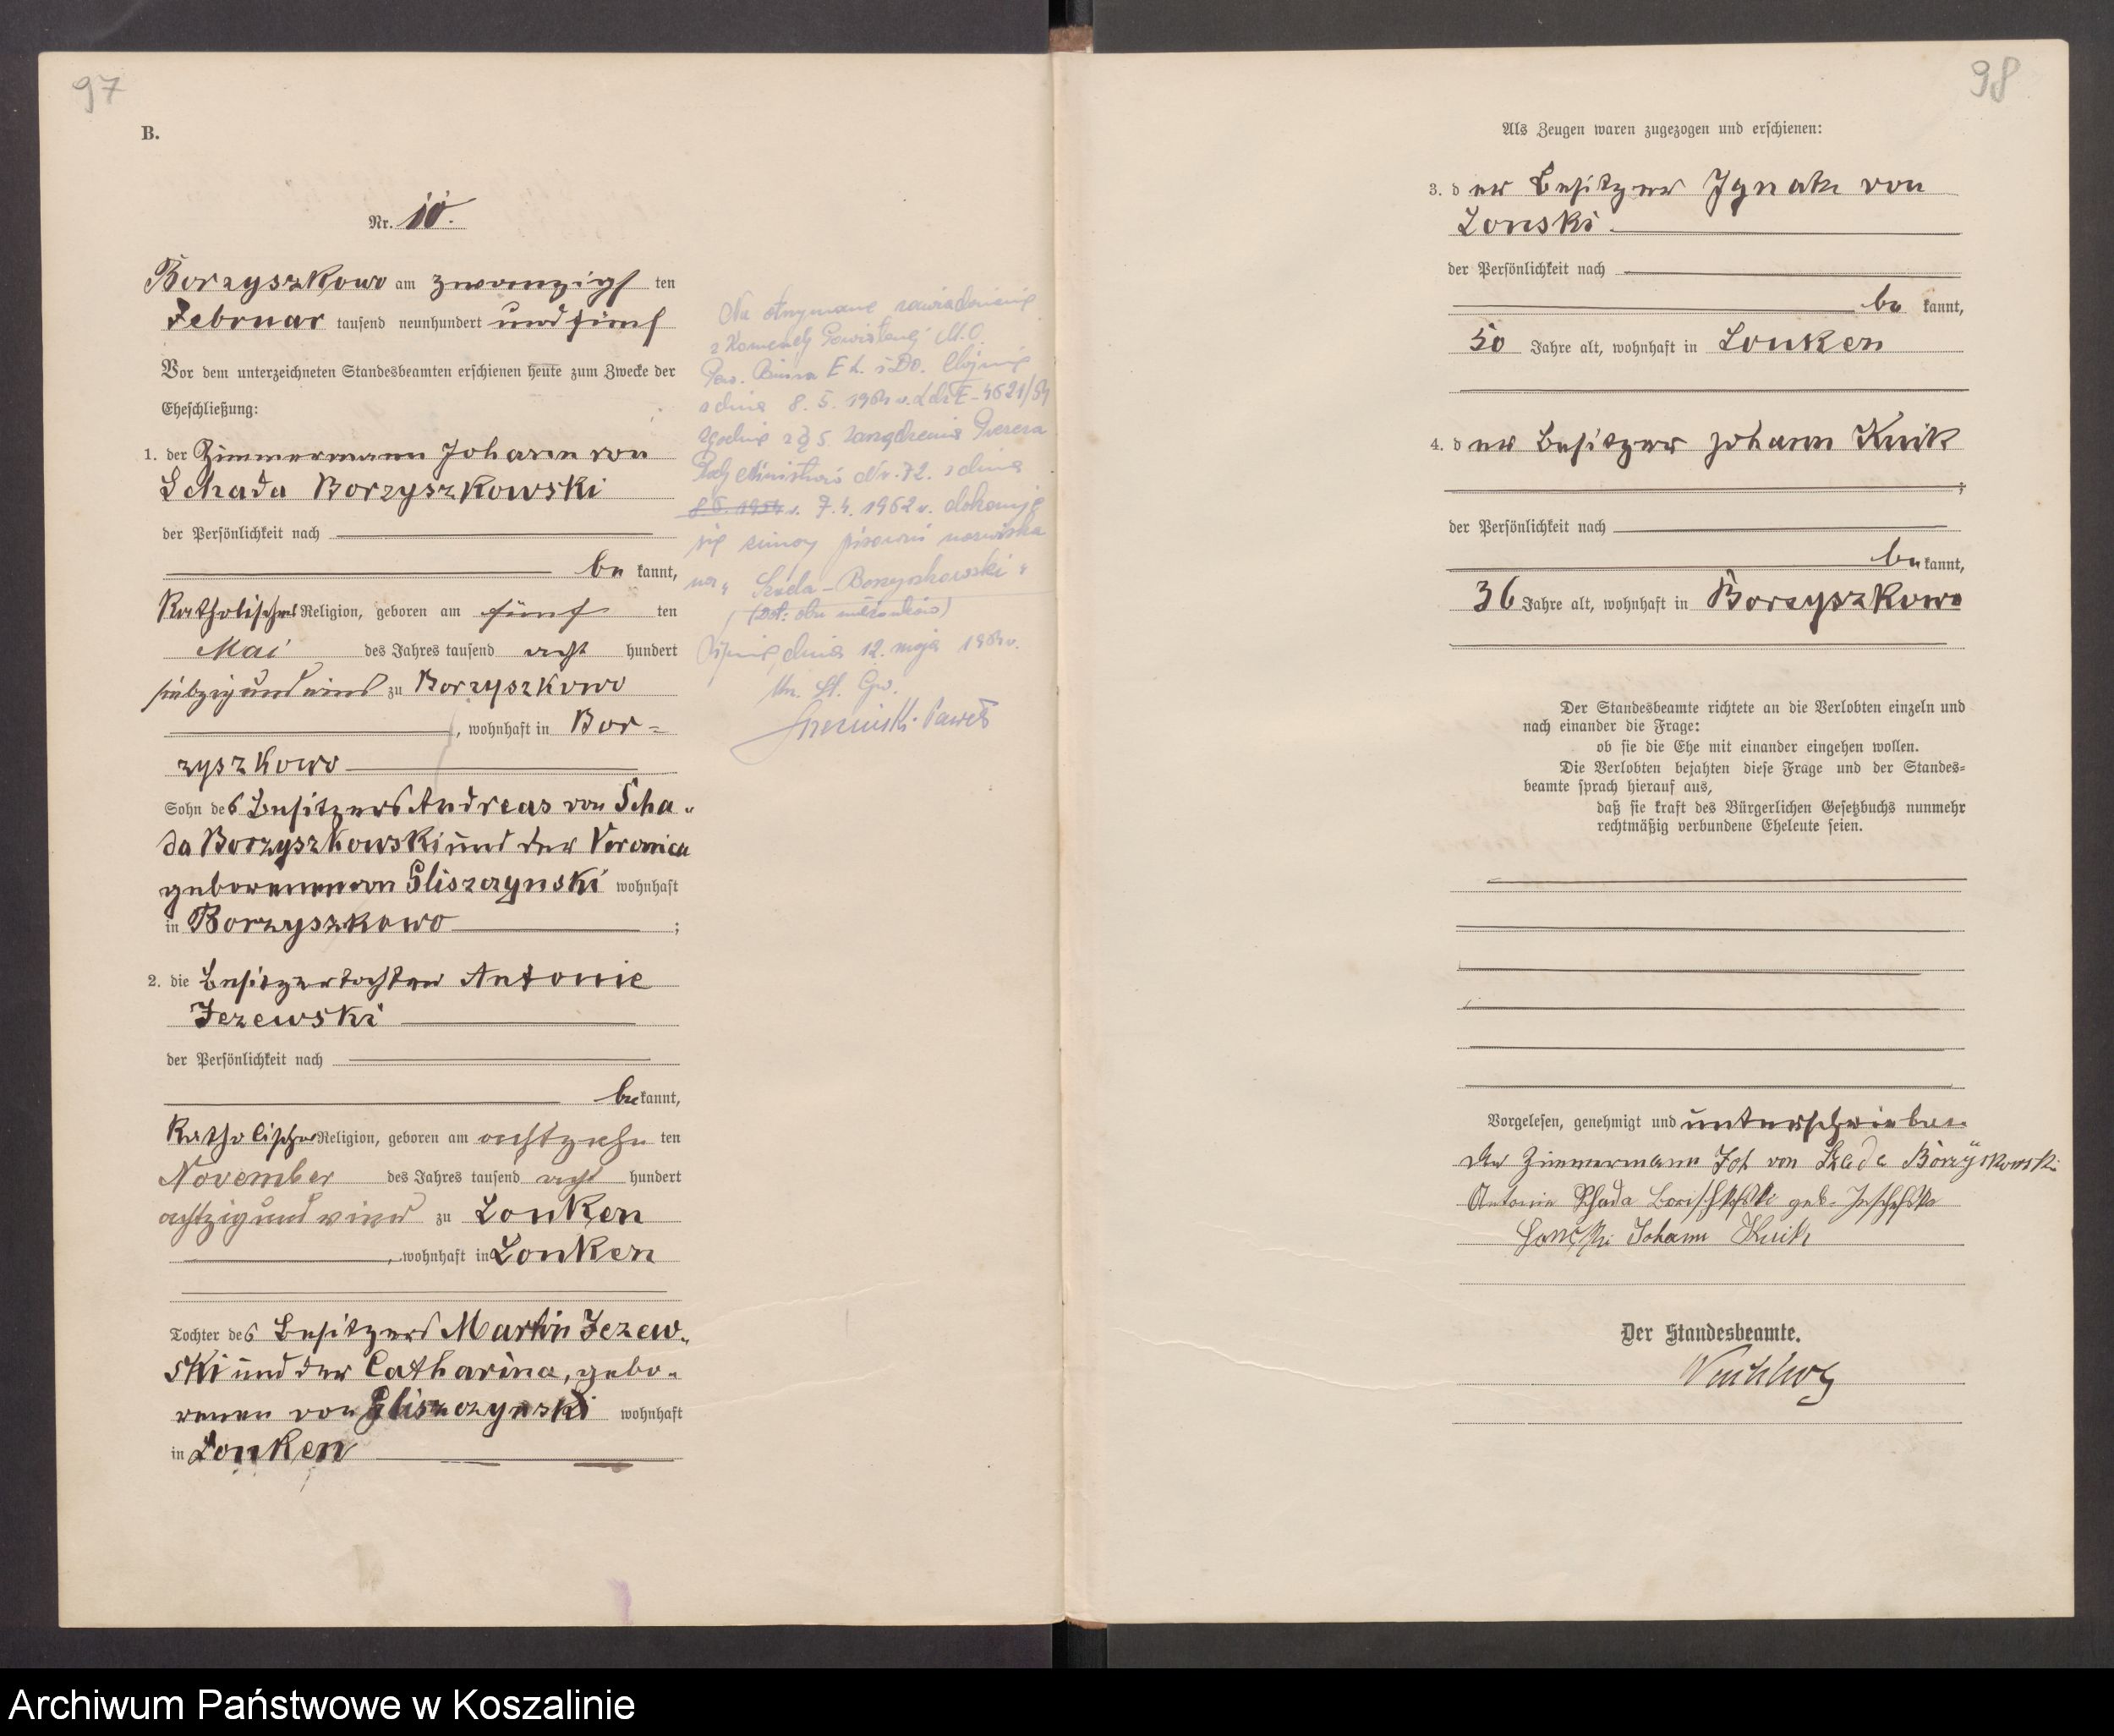 97
B.
Nr. 10.
Borzyszkowo am zwanzigsten
Februar tausend neunhundert und fünf
Vor dem unterzeichneten Standesbeamten erschienen heute zum Zwecke der
Eheschließung:
1. der Zimmermann Johann von
Schada Borzyszkowski
der Persönlichkeit nach
bekannt,
Katholischer Religion, geboren am fünften
Mai des Jahres tausend acht hundert
siebzig und eins zu Borzyszkowo
, wohnhaft in Bor-
zyszkowo
Sohn des Besitzers Andreas von Scha-
da Borzyszkowski und der Veronica
geborenen von Gliszczynski wohnhaft
in Borzyszkowo ;
2. die Besitzertochter Antonie
Jezewski
der Persönlichkeit nach
bekannt,
Katholischer Religion, geboren am achtzehnten
November des Jahres tausend acht hundert
achtzig und vier zu Lonken
, wohnhaft in Lonken
Tochter des Besitzers Martin Jezew-
ski und der Catharina, gebo-
renen von Gliszczynski wohnhaft
in Lonken
Na otrzymane zawiadomienie
z Komendy Powiatowej M.O.
8. 5. 1964 r.
zgodnie z § 5. Zarządzenia Prezesa
Rady Ministrów Nr. 72. z dnia
7.4. 1962 r. dokonuje
się zmiany pisowni nazwiska
na "Szada-Borzyszkowski"
dnia 12. maja 1964 r.
Paweł
98
Als Zeugen waren zugezogen und erschienen:
3. der Besitzer Ignatz von
Lonski
der Persönlichkeit nach
bekannt,
50 Jahre alt, wohnhaft in Lonken
4. der Besitzer Johann Knik
;
der Persönlichkeit nach
bekannt,
36 Jahre alt, wohnhaft in Borzyszkowo
Der Standesbeamte richtete an die Verlobten einzeln und
nach einander die Frage:
ob sie die Ehe mit einander eingehen wollen.
Die Verlobten bejahten diese Frage und der Standes-
beamte sprach hierauf aus,
daß sie kraft des Bürgerlichen Gesetzbuchs nunmehr
rechtmäßig verbundene Eheleute seien.
Vorgelesen, genehmigt und unterschrieben
Der Zimmermann Joh von Szada Borzyskowski
Antonie Schada geb.
Johann Knik
Der Standesbeamte.
Archiwum Państwowe w Koszalinie